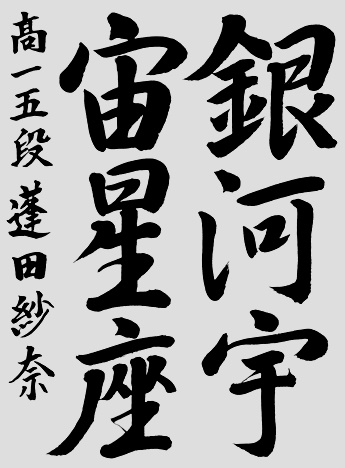 銀河宇
宙星座
高一五段 蓬田紗奈